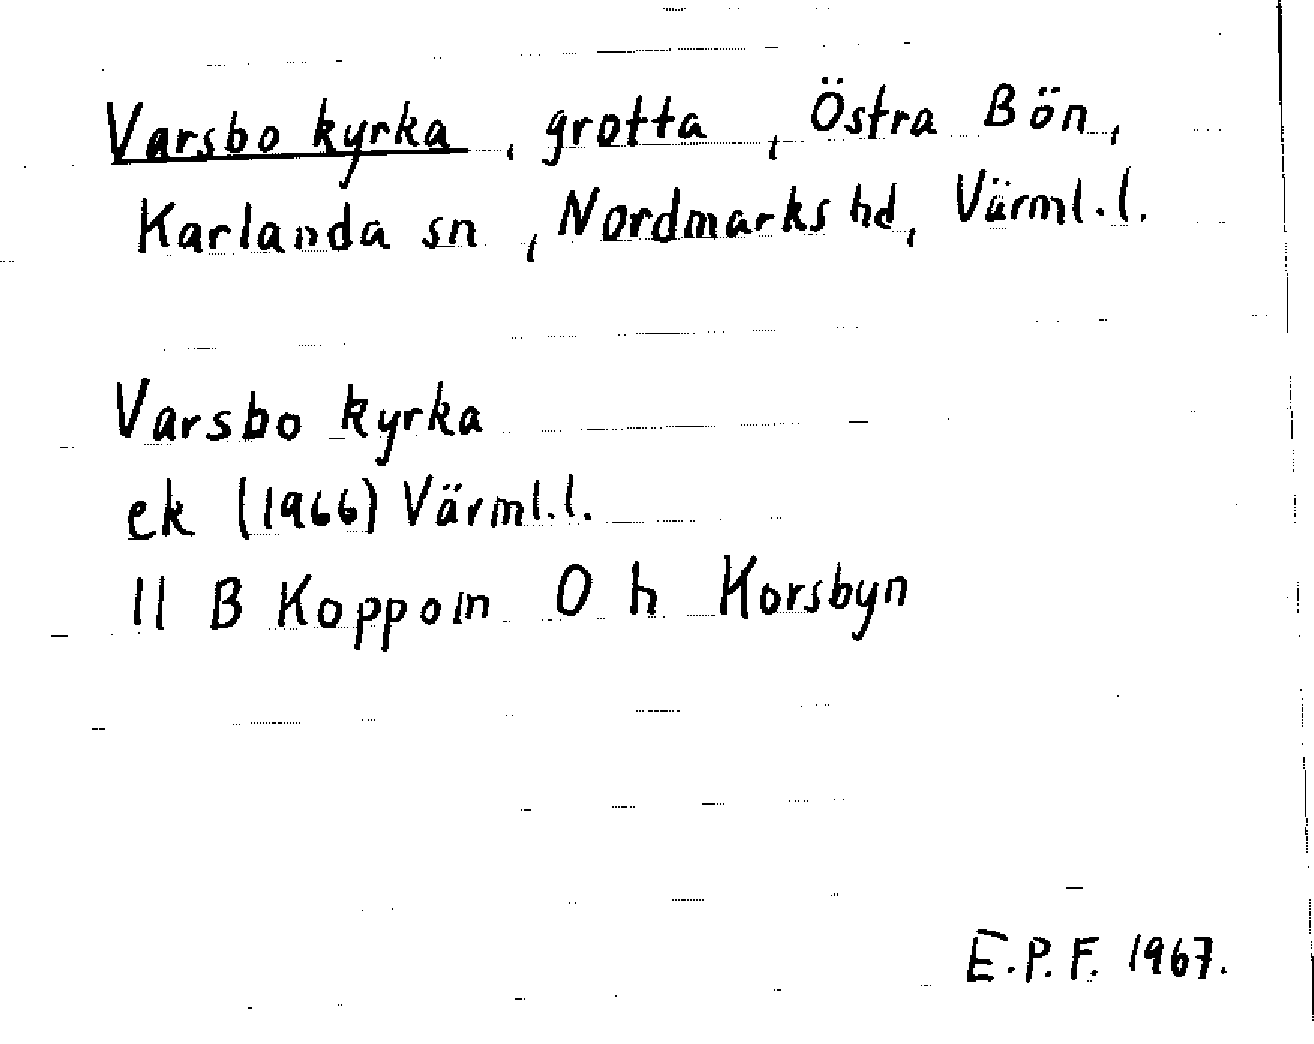 Varsbo kyrka, grotta, Östra Bön,
Karlanda sn, Nordmarks hd, Värml.l.
Varsbo kyrka
ek (1966) Värml.l.
11 B Koppom 0 h Korsbyn
E.P.F. 1967.